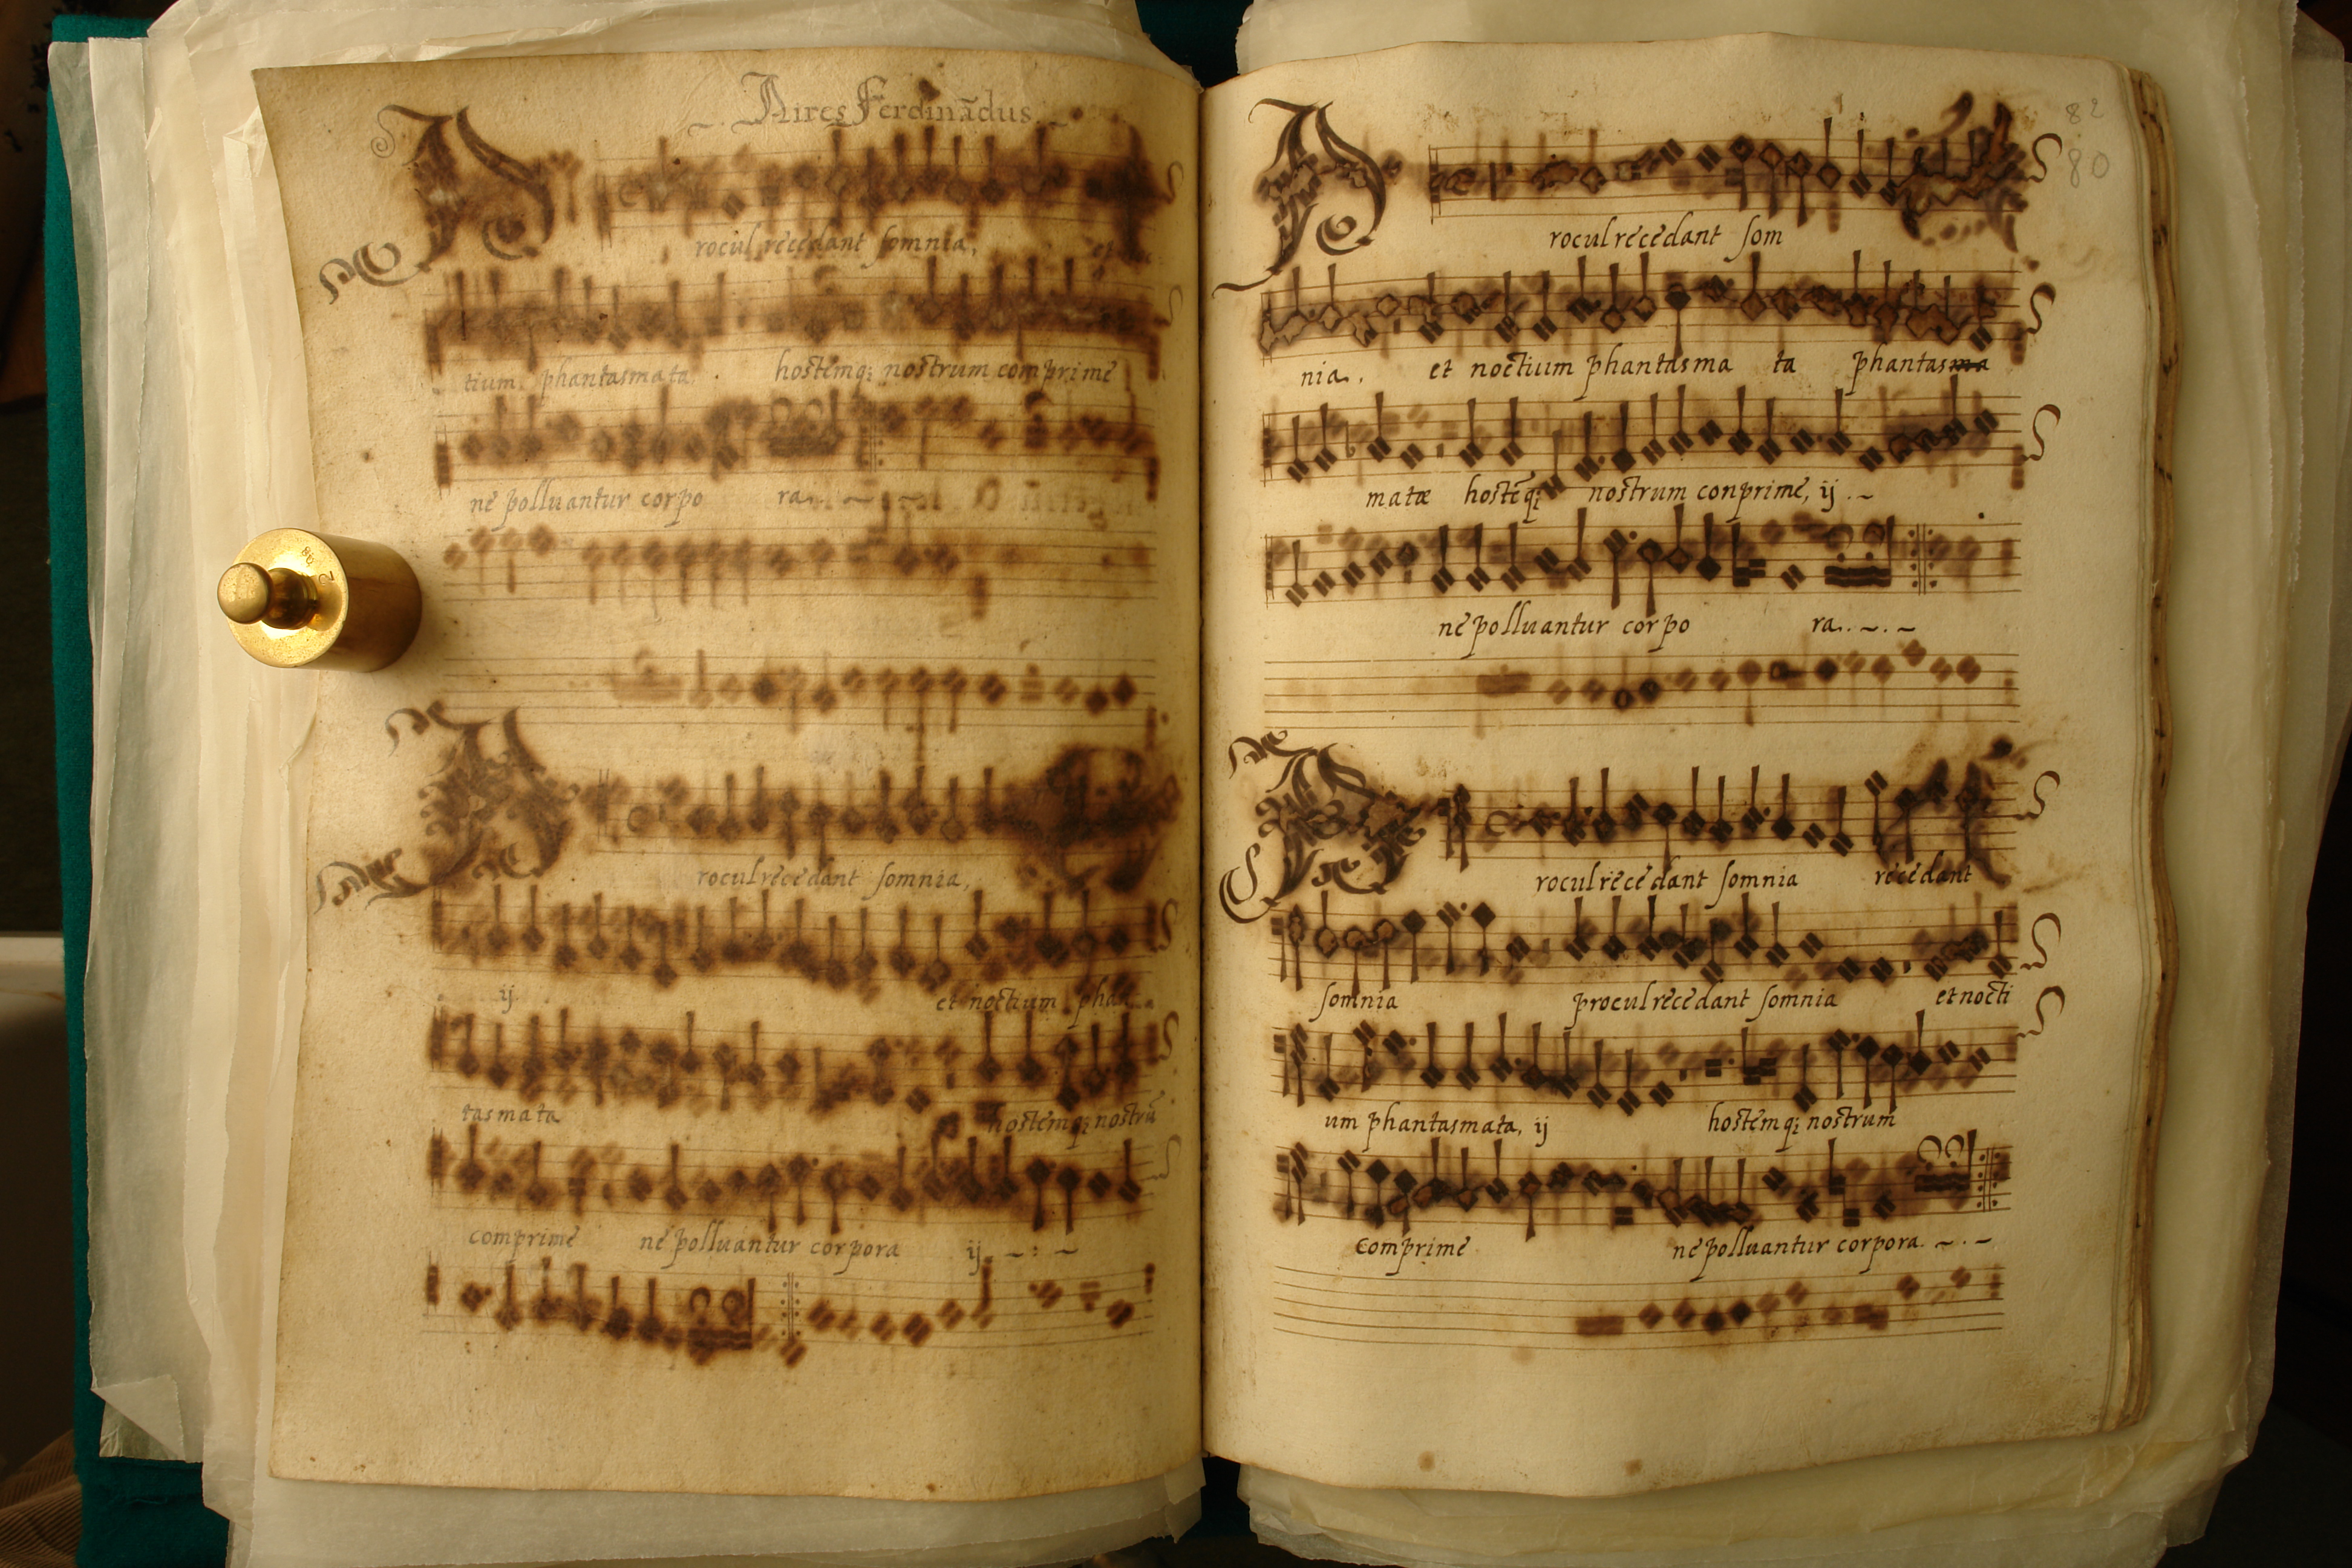 Aires Ferdinãdus
Procul recedant somnia, et
tium phantasmata. hostemq; nostrum comprime
ne polluantur corpo ra.
Procul recedant somnia,
ij et noctium phan
tasmata hostemq; nostrũ
comprime ne polluantur corpora ij
82
80
Procul recedant som
nia, et noctium phantasma ta phantasma
matæ hostẽq; nostrum conprime, ij
ne polluantur corpo ra.
Procul recedant somnia recedant
somnia procul recedant somnia et nocti
um phantasmata, ij hostemq; nostrum
comprime ne polluantur corpora.